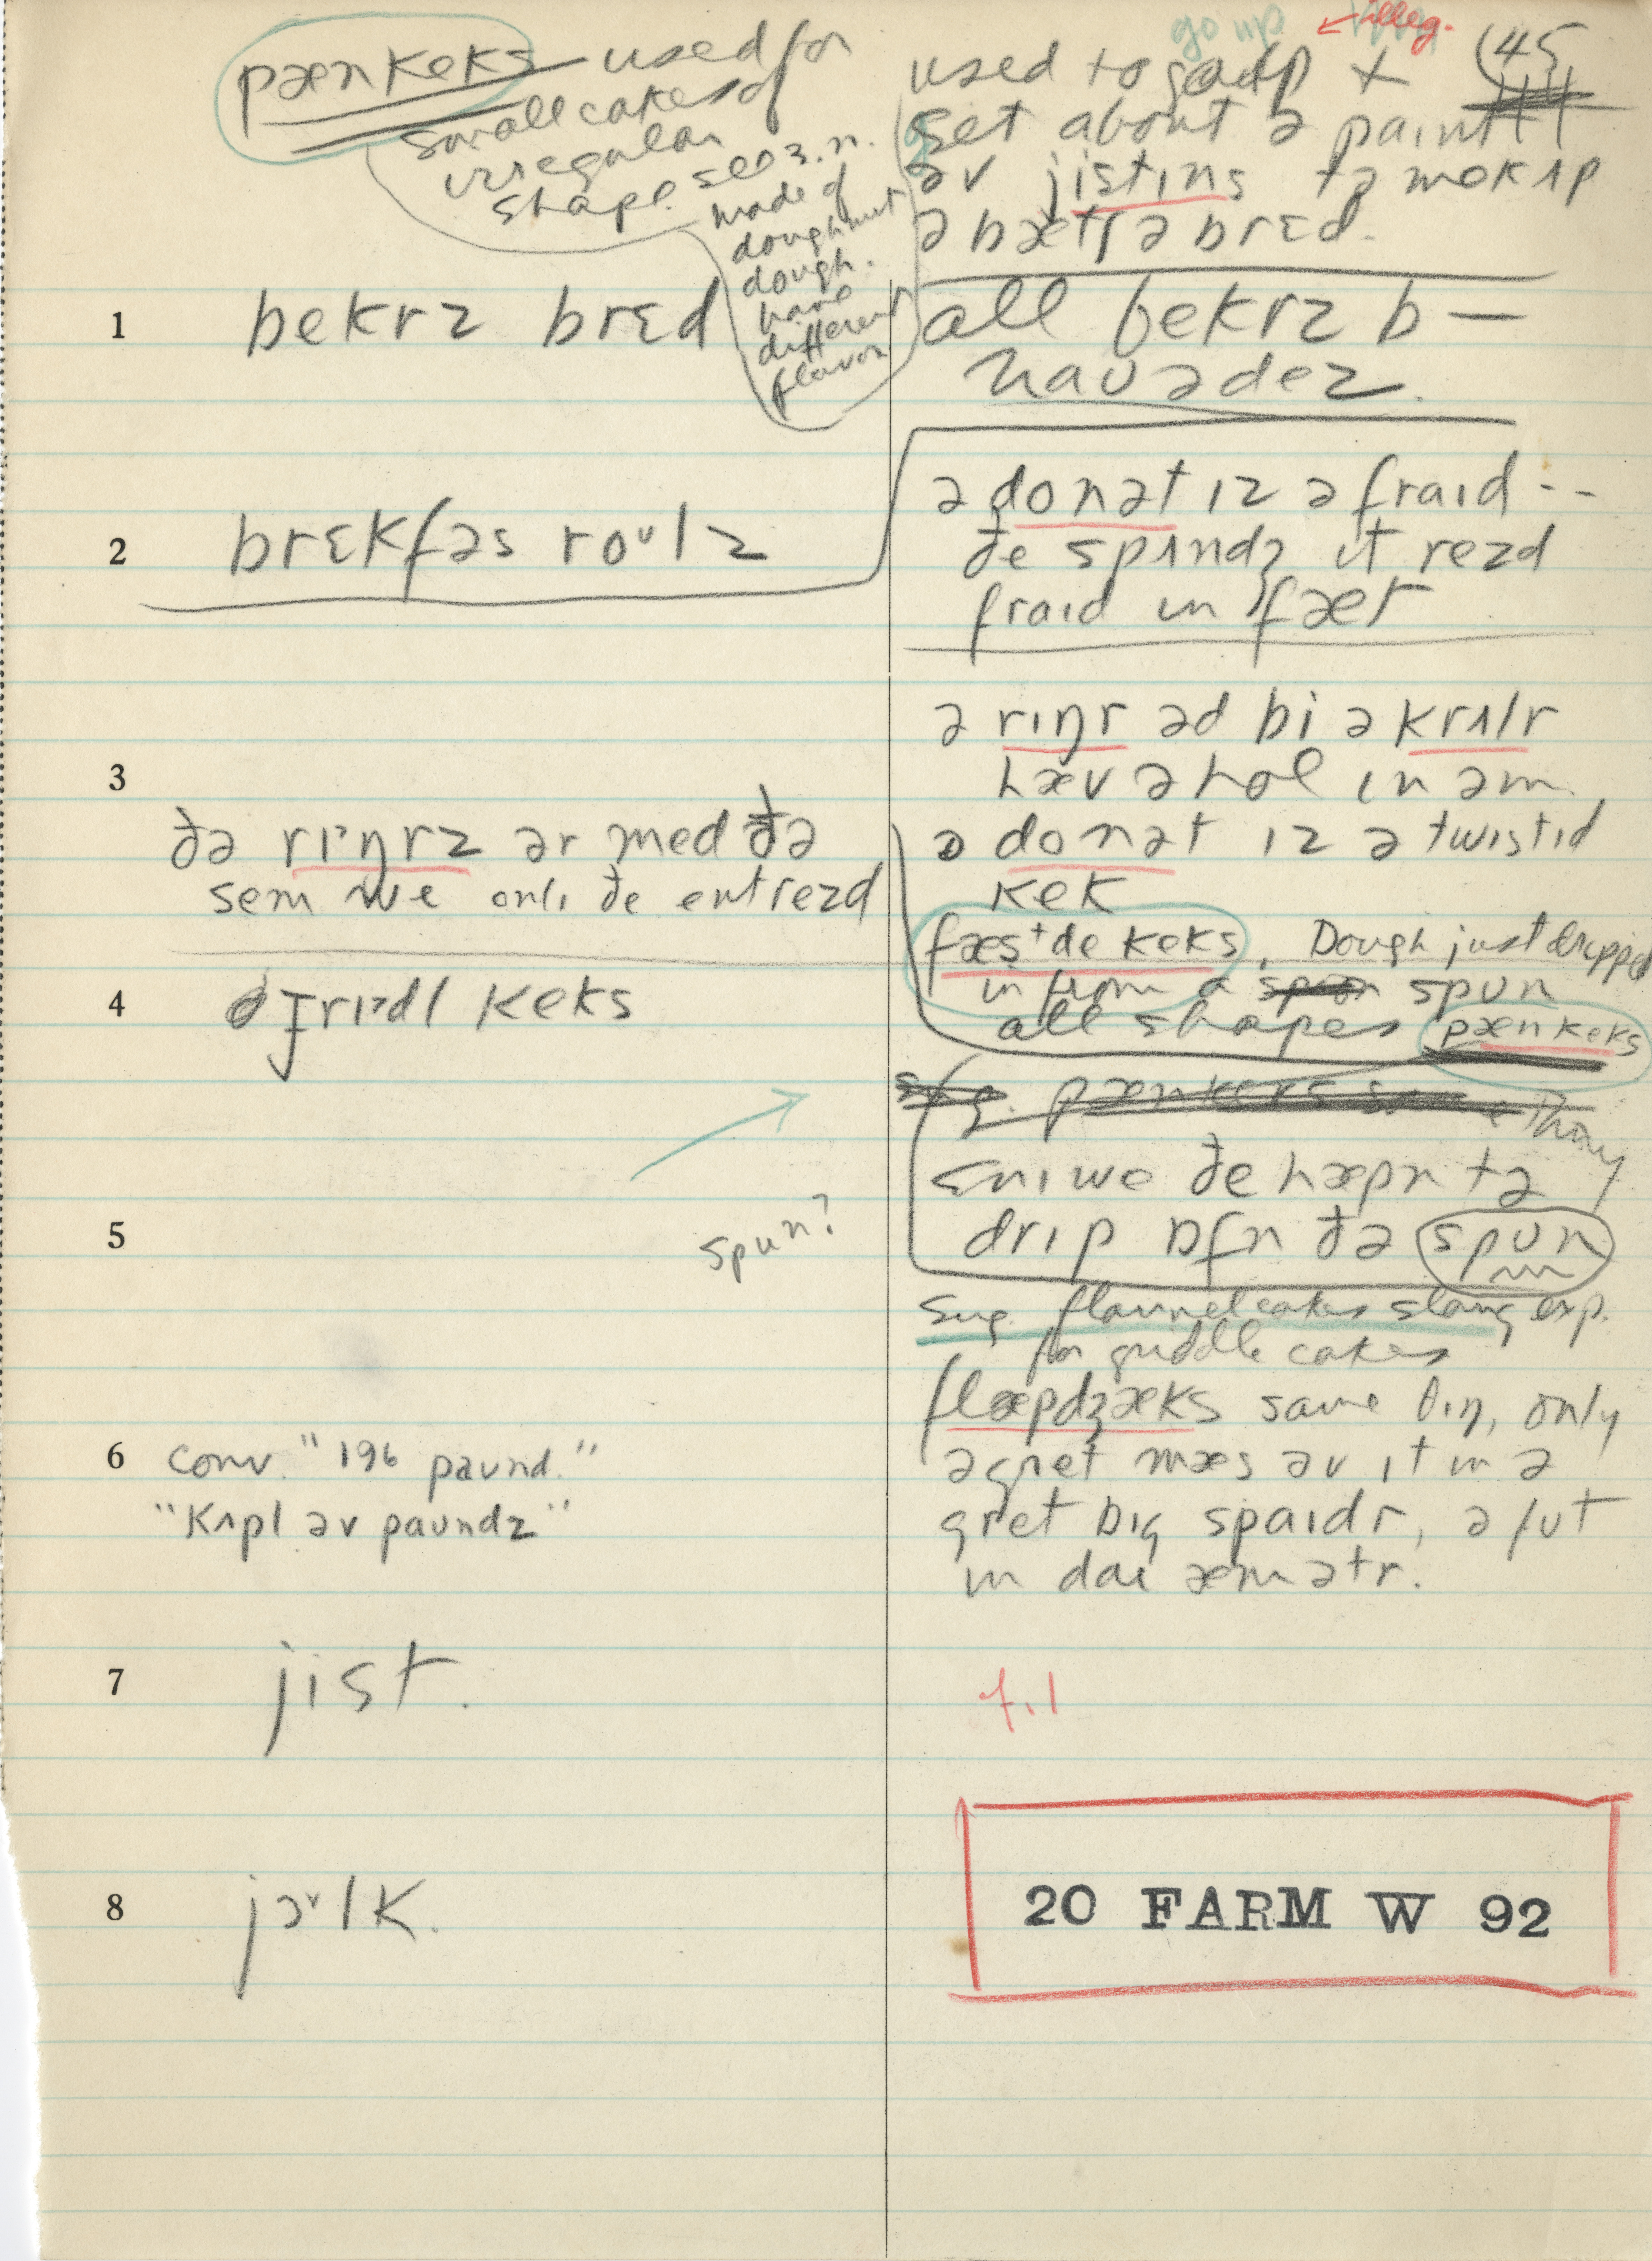 pænkeks used for
small cakes of
irregular
shape. see 3. n.
made of
doughnut
dough.
have
different
flavor
go up illeg.
used to go up + (45
get about ə paint
əv jistɪns tə mek ʌp
ə bætʃ ə brɛd.
1 bekrz brɛd
all bekrz b —
nauədez.
2 brɛkfəs roʊlz
ə donət ɪz ə fraɪd --
ðe spɪndʒ ɪt rezd
fraɪd ɪn fæt
3
ə rɪŋr əd bi ə krʌlr
hæv ə hol ɪn əm
ðə rɪŋrz ər med ðə
sem we onlɪ ðe ent rezd
ə donət ɪz ə twɪstɪd
kek
fæst de keks, Dough just dripped
in from a spun
all shapes pænkeks
4 grɪdl keks
sug. pænkeks same thing
ɛnɪ we ðe hæpn tə
drɪp ɒfn ðə spun
5 spun?
Sug. flannel cakes slang exp.
for griddle cakes
flæpdʒæks same θɪŋ, only
ə gret mæs əv ɪt ɪn ə
gret bɪg spaɪdr, ə fʊt
ɪn daɪæmətr.
6 conv. "196 paʊnd."
"kʌpl əv paʊndz"
7 jist.
f.1
8 jɔʊlk.
20 FARM W 92